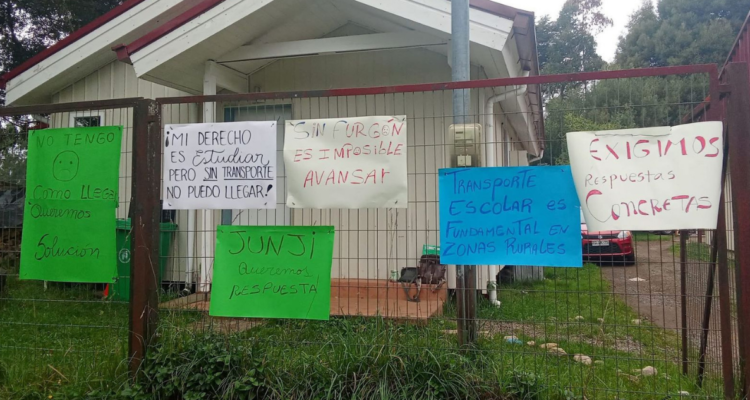 NO TENGO
Como llego
Queremos
Solución
¡MI DERECHO
ES Estudiar
PERO SIN TRANSPORTE
NO PUEDO LLEGAR!
SIN FURGÓN
ES IMPOSIBLE
AVANSAr
JUNJI
Queremos
RESPUESTA
TRANSPORTE
ESCOLAR ES
FUNDAMENTAL EN
ZONAS RURALES
EXIGIMOS
Respuestas
CONCRETAS